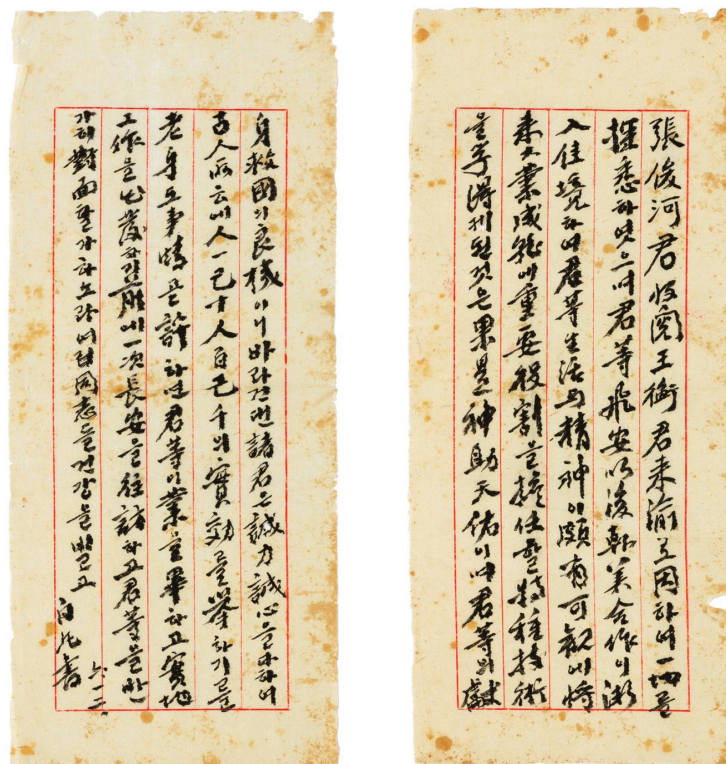 張俊河君收閱 王衡君来渝를因하여一切를
探悉하엿으며君等飛安以後韓美合作이漸
入佳境하야君等生活과精神이頗有可觀이며將
来大業成就에重要役割을擔任할特種技術
을學得케된것은果是神助天佑이며君等의獻
身救國의良機이니바라건대諸君은誠力誠心을다하여
古人所云에人一己十人百己千의實効를擧하기를
老身도事情은許하면君等이業을畢하고實地
工作을出發하긔前에一次長安을往訪하고君等을반
가히對面할가하노라여러同志들건강을바르고
白凡書 六.一二.